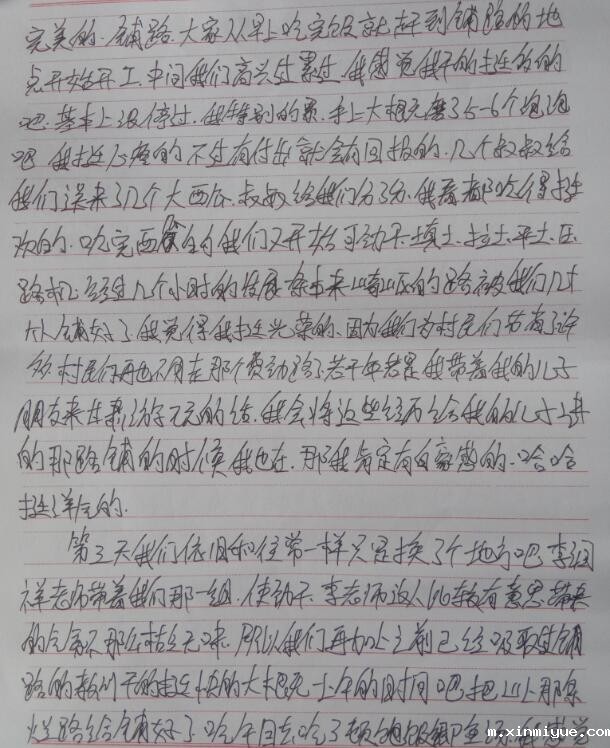 完美的.铺路.大家从早上吃完饭就赶到铺路的地
点开始开工.中间我们高兴过累过.我感觉我干的挺多的
吧.基本上没停过.我特别的累.手上大概磨了5-6个泡泡
吧 我挺心疼的不过有付出就会有回报的.几个叔叔给
我们送来了几个大西瓜.叔叔给我们分了分.我看都吃得挺
欢的.吃完西瓜的我们又开始干.填土.拉土.平土.压
路机.经过几个小时的 路被我们几十
人铺好了我觉得我挺光荣的.因为我们为村民们节省了许
多 村民们再也不用走那个费劲路了若干年若是我带着我的儿子
朋友来 游玩的话.我会将这些经历给我的儿子讲
的那路铺的时候我也在.那我肯定有自豪感的.哈哈
挺 的.
第三天我们依旧和往常一样只是换了个地方吧 李润
祥老师带着我们那一组.使劲干.李老师这人比较有意思.带来
的气氛不那么枯燥无味.所以我们再加上之前已经吸取过铺
路的教训干的挺快的大概花一上午的时间吧把山上那条
烂路给铺好了吃午回去吃了顿
m.xinmiyue.com